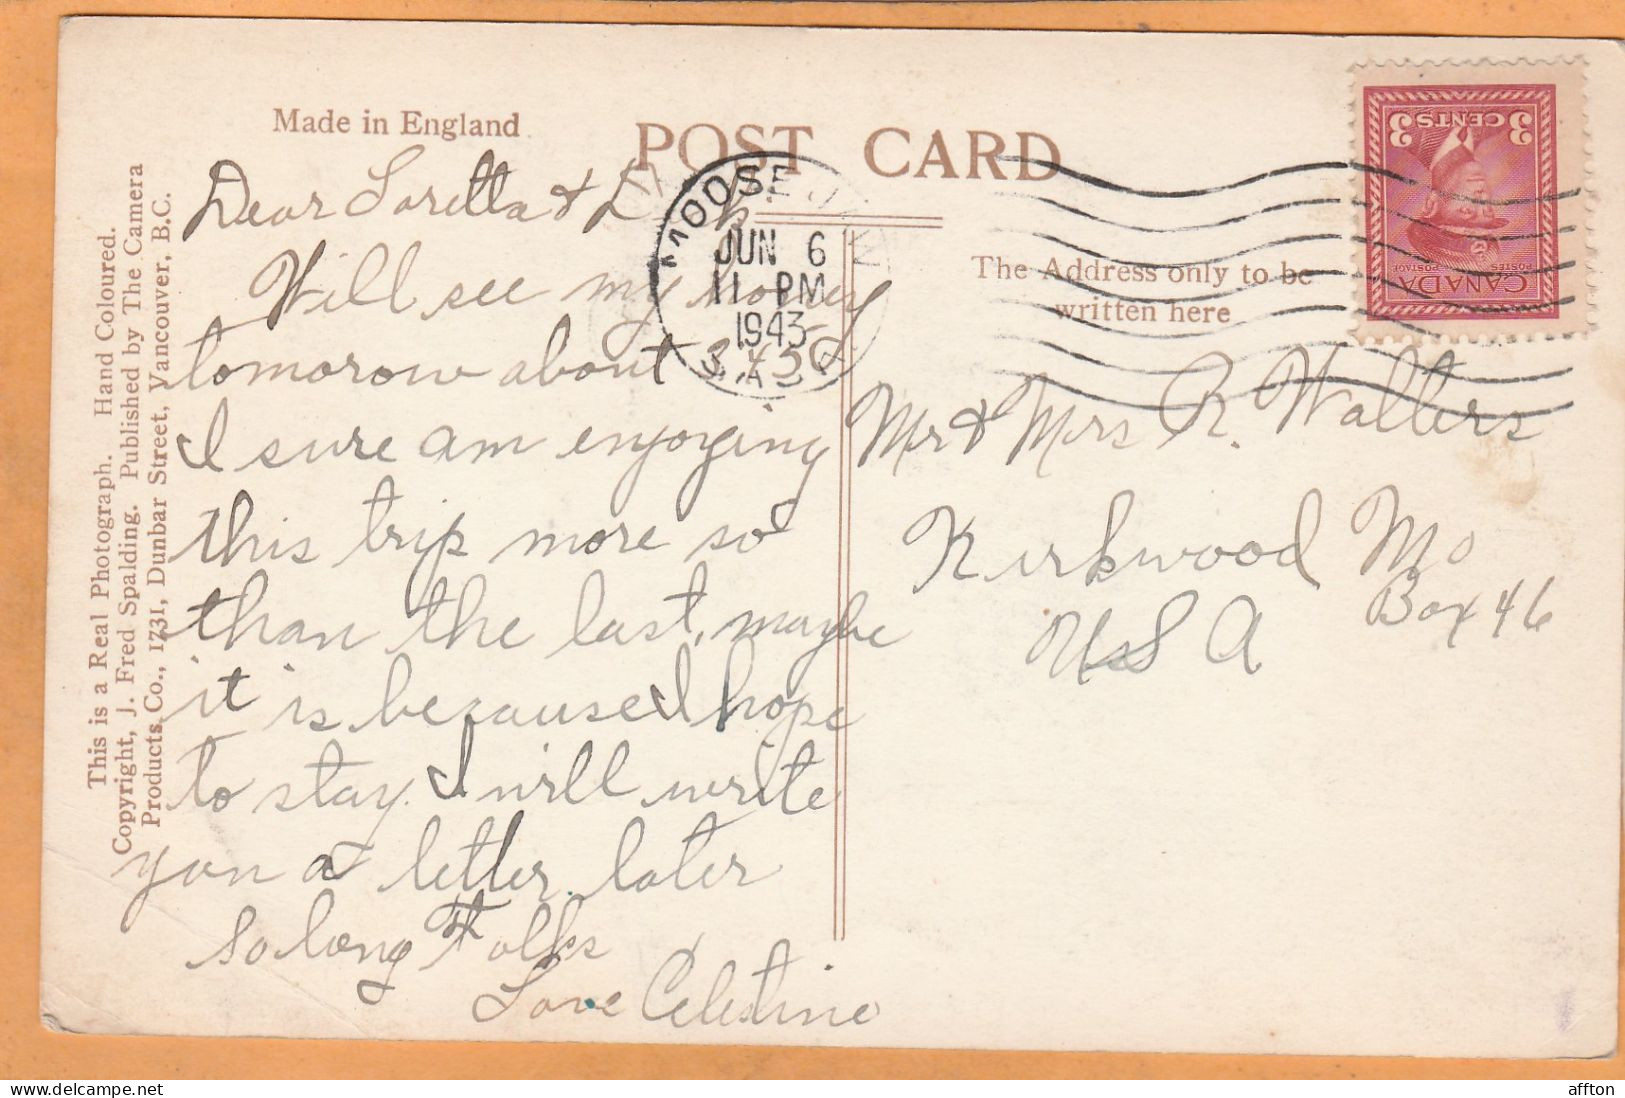 Made in England
POST CARD
MOOSE JAW
JUN 6
11 PM
1943
SASK
The Address only to be
written here
3 CENTS 3
POSTES POSTAGE
CANADA
This is a Real Photograph. Hand Coloured.
Copyright, J. Fred Spalding. Published by The Camera
Products Co., 1731, Dunbar Street, Vancouver, B.C.
Dear Loretta &
Will see my honey
tomorow about
I sure am enjoying
this trip more so
than the last, maybe
it is because I hope
to stay. I will write
you a letter later
So long Folks
Love Celestine
Mr & Mrs R. Walters
Kirkwood Mo
Box 46
U S A
affton